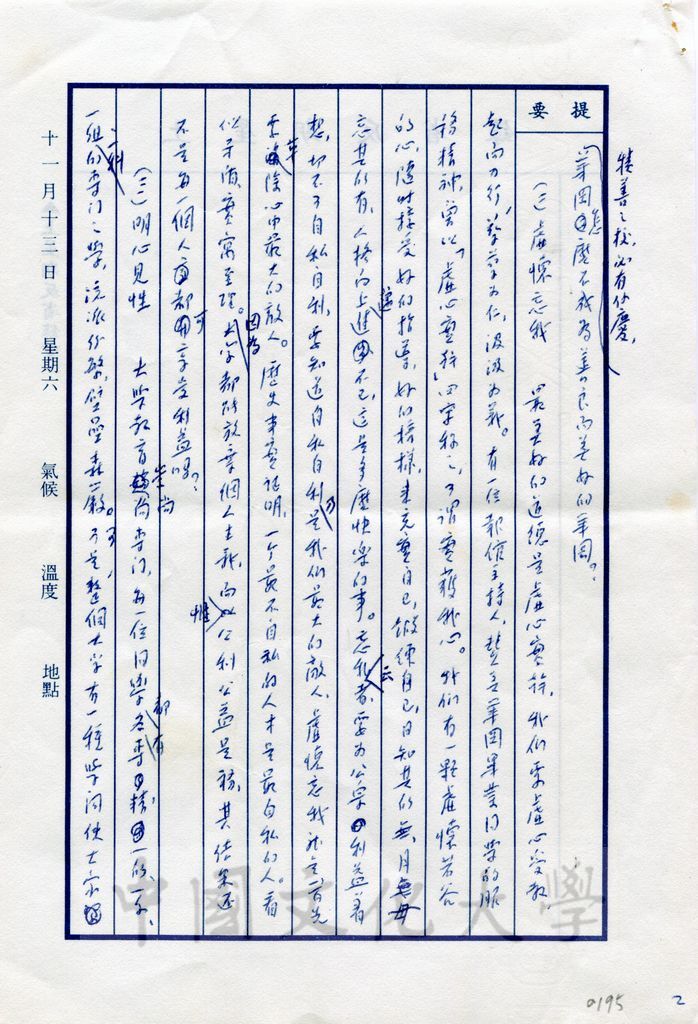 提要
種善之校,必有餘慶,
華岡怎麼不成為善良而美好的華岡?
(二)虛懷忘我 最美好的道德是虛心實幹,我們要虛心受教,
起而力行,孳孳為仁,汲汲為義。有一位報館主持人,贊言華岡畢業同學的服
務精神,曾以「虛心實幹」四字稱之,可謂實獲我心。我們有一顆虛懷若谷
的心,隨時接受好的指導,好的榜樣,來充實自己,鍛鍊自己,日知其所無,月毋
忘其所有,人格向上進不已,這是多麼快樂的事。忘我云者,要為公眾利益着
想,切不可自私自利,要知道自私自利乃是我們最大的敵人,虛懷忘我就是首先
要革除心中最大的敵人。歷史事實證明,一个最不自私的人才是最自私的人。看
似矛盾,實寓至理。因為大家都能放棄個人主義,而惟公利公益是務,其結果還
不是每一個人都可享受利益嗎?
(三)明心見性 大學教育崇尚專門,每一位同學都有各專其精的一系、
一組、一科的專門之學,流派紛繁,壁壘森嚴。可是整個大學有一種學問使大家
十一月十三日 星期六 氣候 溫度 地點
中國文化大學
0195
2